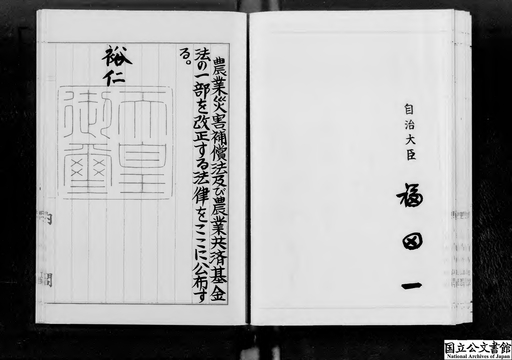 自治大臣
福田一
農業災害補償法及び農業共済基金
法の一部を改正する法律をここに公布す
る。
裕仁
天皇
御璽
国立公文書館
National Archives of Japan